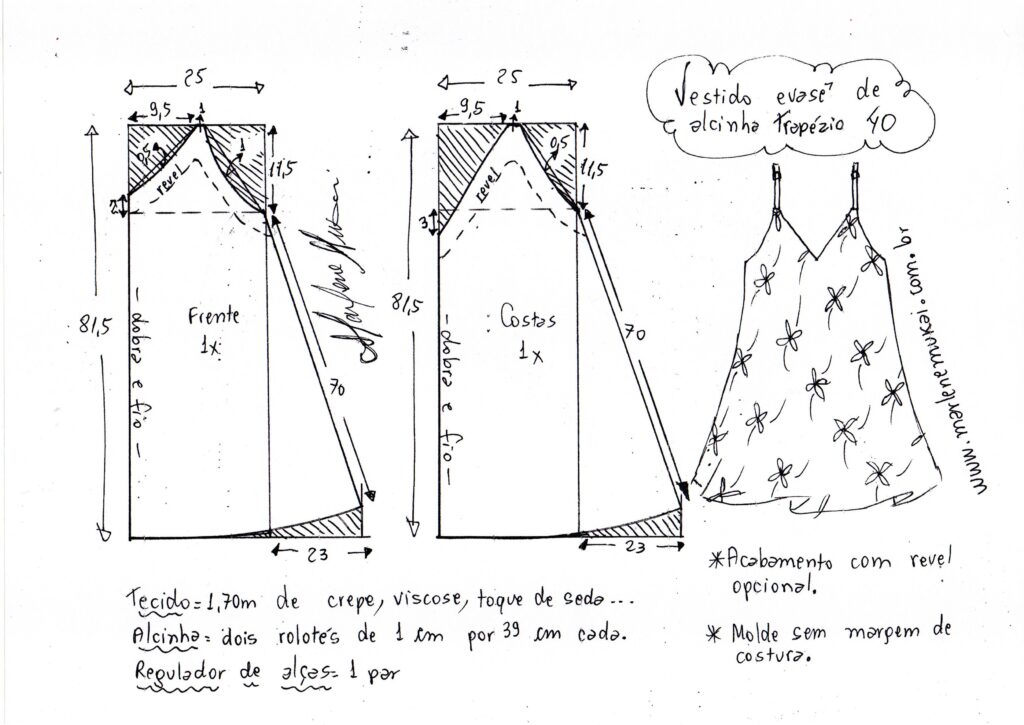 25
9,5
1
0,5
1
11,5
revel
2
81,5
Frente
1x
- dobra e fio -
70
23
25
9,5
1
0,5
11,5
revel
3
81,5
Costas
1x
- dobra e fio -
70
23
Vestido evasê de
alcinha Trapézio 40
www.marlenemukai.com.br
*Acabamento com revel
opcional.
* Molde sem margem de
costura.
Tecido= 1,70m de crepe, viscose, toque de seda...
Alcinha= dois rolotês de 1 cm por 39 cm cada.
Regulador de alças= 1 par